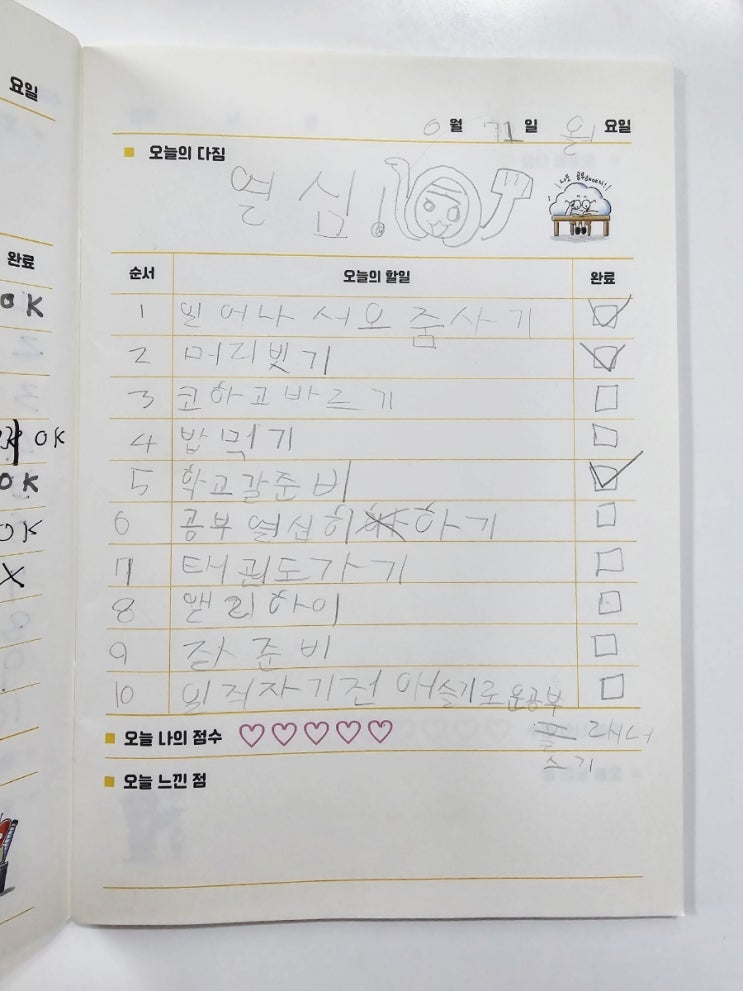 요일
월 일 월 요일
오늘의 다짐
열심!
나도 공부해야지!
완료
순서 오늘의 할일 완료
OK
1 일어나서오줌사기
2 머리빗기
3 코하고바르기
4 밥먹기
OK
5 학교갈준비
OK
6 공부열심히하기
OK
7 태권도가기
X
8 앤리하이
9 자준비
10 일직자기전 애슬기로운공부
플래너
스기
오늘 나의 점수
오늘 느낀 점